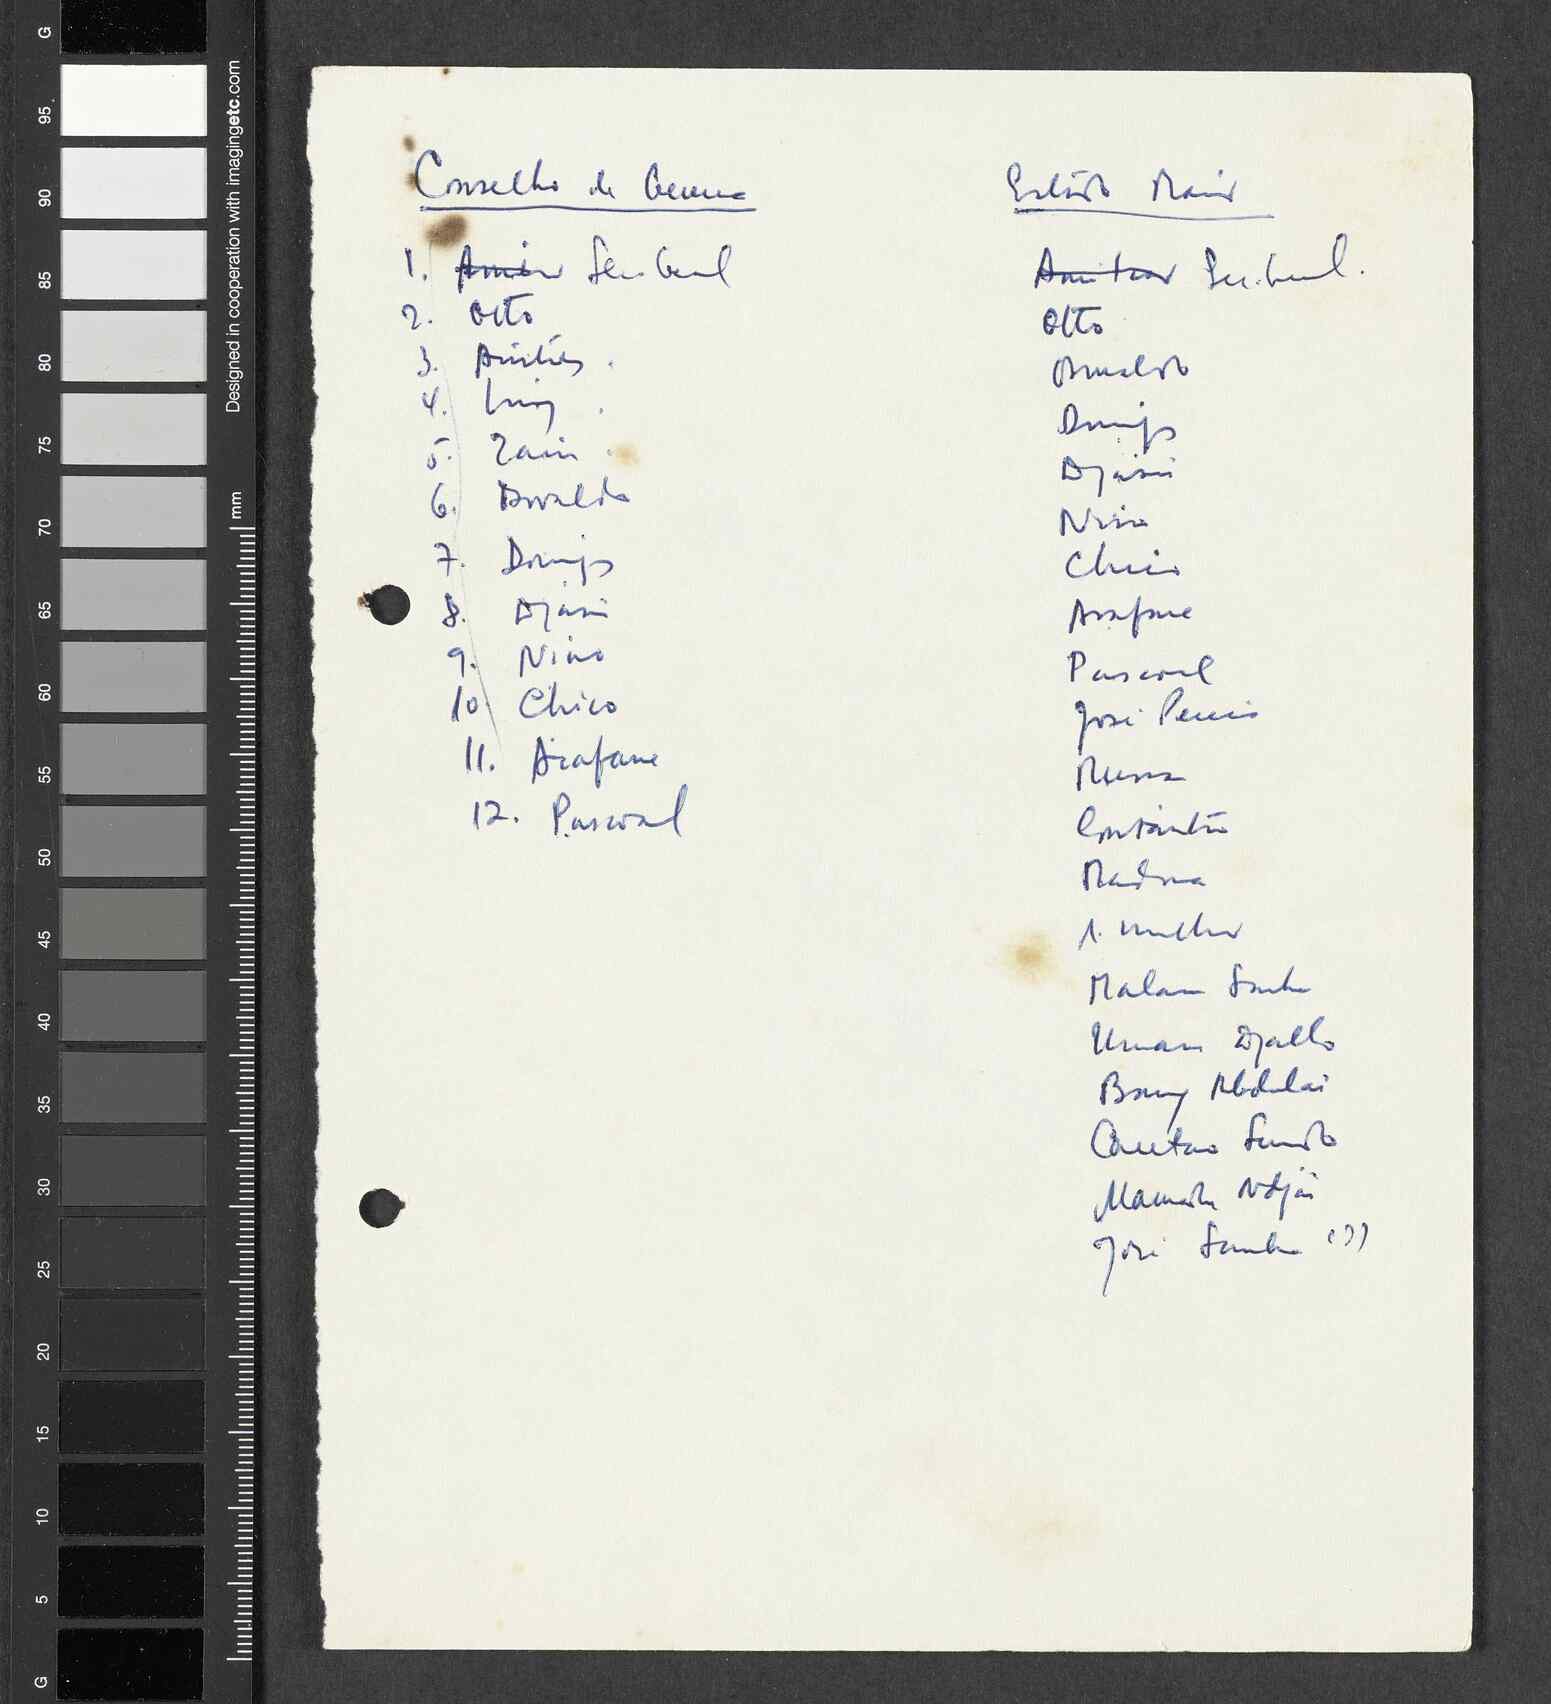 Conselho de Guerra
1. Amílcar Sec. Geral
2. Otto
3. Aristides
4. Luiz
5. Zain
6. Osvaldo
7. Domingos
8. Djassi
9. Nino
10. Chico
11. Arafane
12. Pascoal
Estado Maior
Amílcar Sec. Geral.
Otto
Osvaldo
Domingos
Djassi
Nino
Chico
Arafane
Pascoal
José
Mussa
Constantino
1. mulher
Malam Sanha
Umaru Djallo
Abdulai
Caetano Semedo
Mamadu Ndjai
José Sanha (?)
G
95
90
85
80
75
70
65
60
55
50
45
40
35
30
25
20
15
10
5
G
Designed in cooperation with imagingetc.com
mm